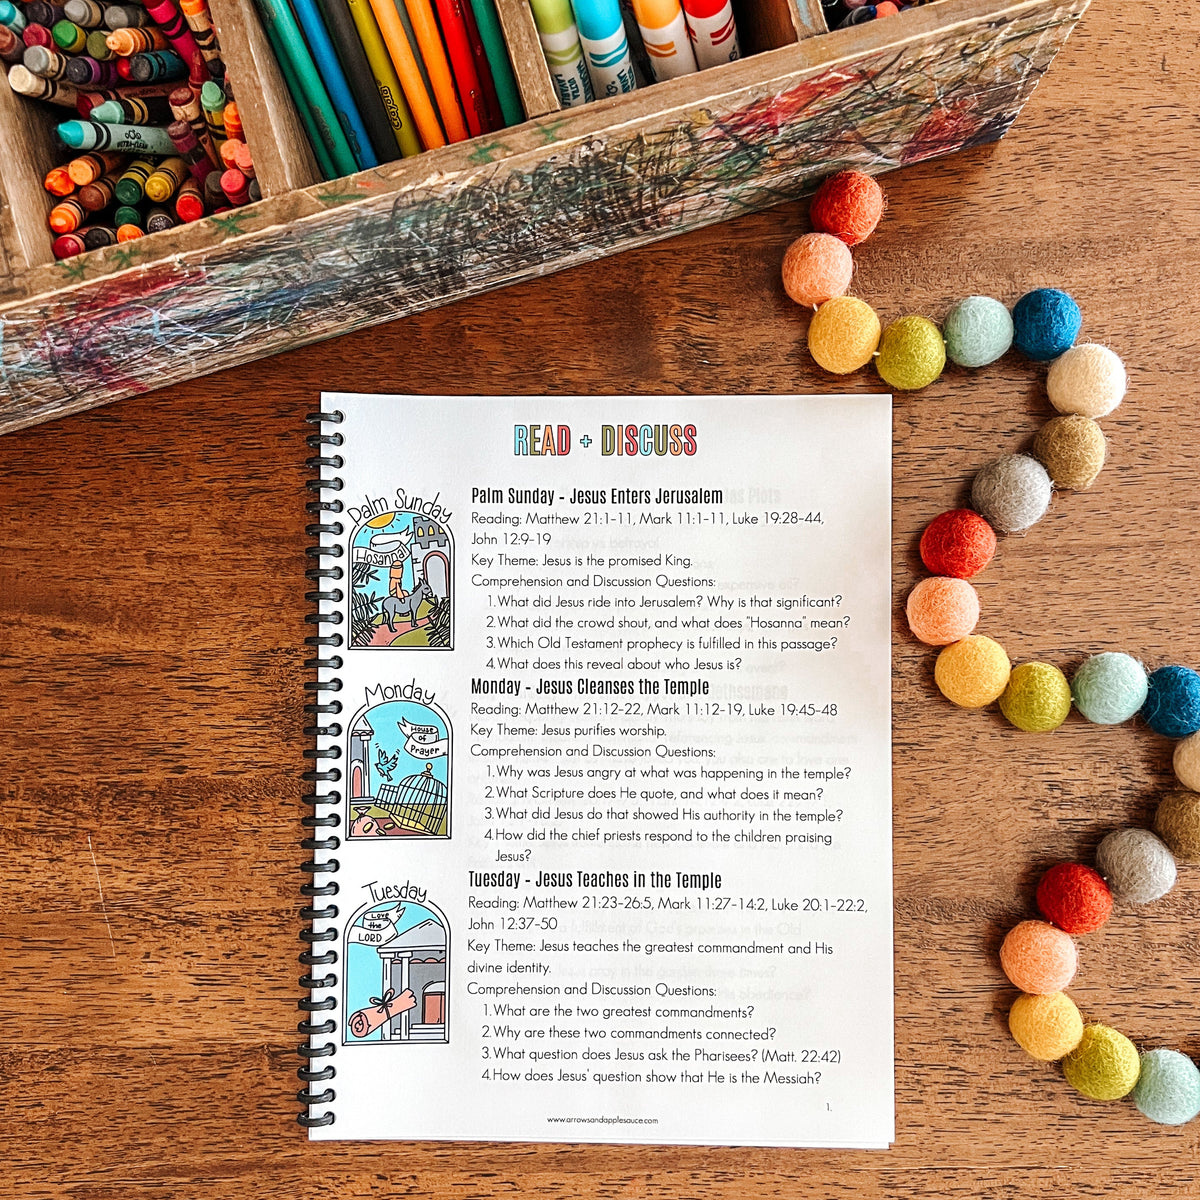 crayola
READ + DISCUSS
Palm Sunday
Hosanna!
Palm Sunday - Jesus Enters Jerusalem
Reading: Matthew 21:1-11, Mark 11:1-11, Luke 19:28-44,
John 12:9-19
Key Theme: Jesus is the promised King.
Comprehension and Discussion Questions:
1. What did Jesus ride into Jerusalem? Why is that significant?
2. What did the crowd shout, and what does "Hosanna" mean?
3. Which Old Testament prophecy is fulfilled in this passage?
4. What does this reveal about who Jesus is?
Monday
House
of
Prayer
Monday - Jesus Cleanses the Temple
Reading: Matthew 21:12-22, Mark 11:12-19, Luke 19:45-48
Key Theme: Jesus purifies worship.
Comprehension and Discussion Questions:
1. Why was Jesus angry at what was happening in the temple?
2. What Scripture does He quote, and what does it mean?
3. What did Jesus do that showed His authority in the temple?
4. How did the chief priests respond to the children praising
Jesus?
Tuesday
Love
the
LORD
Tuesday - Jesus Teaches in the Temple
Reading: Matthew 21:23-26:5, Mark 11:27-14:2, Luke 20:1-22:2,
John 12:37-50
Key Theme: Jesus teaches the greatest commandment and His
divine identity.
Comprehension and Discussion Questions:
1. What are the two greatest commandments?
2. Why are these two commandments connected?
3. What question does Jesus ask the Pharisees? (Matt. 22:42)
4. How does Jesus' question show that He is the Messiah?
1.
www.arrowsandapplesauce.com